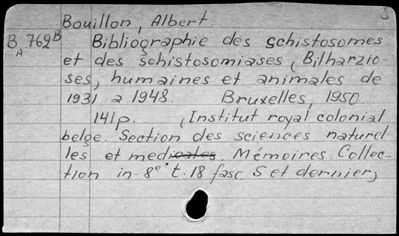 5
Bouillon, Albert.
B 762B Bibliographie des schistosomes
A et des schistosomiases, (Bilharzio
ses, humaines et animales de
1931 à 1948. Bruxelles, 1950.
141p. (Institut royal colonial
belge. Section des sciences naturel
les et medicales. Mémoires. Collec-
tion in-8° t.18 fasc. 5 et dernier)